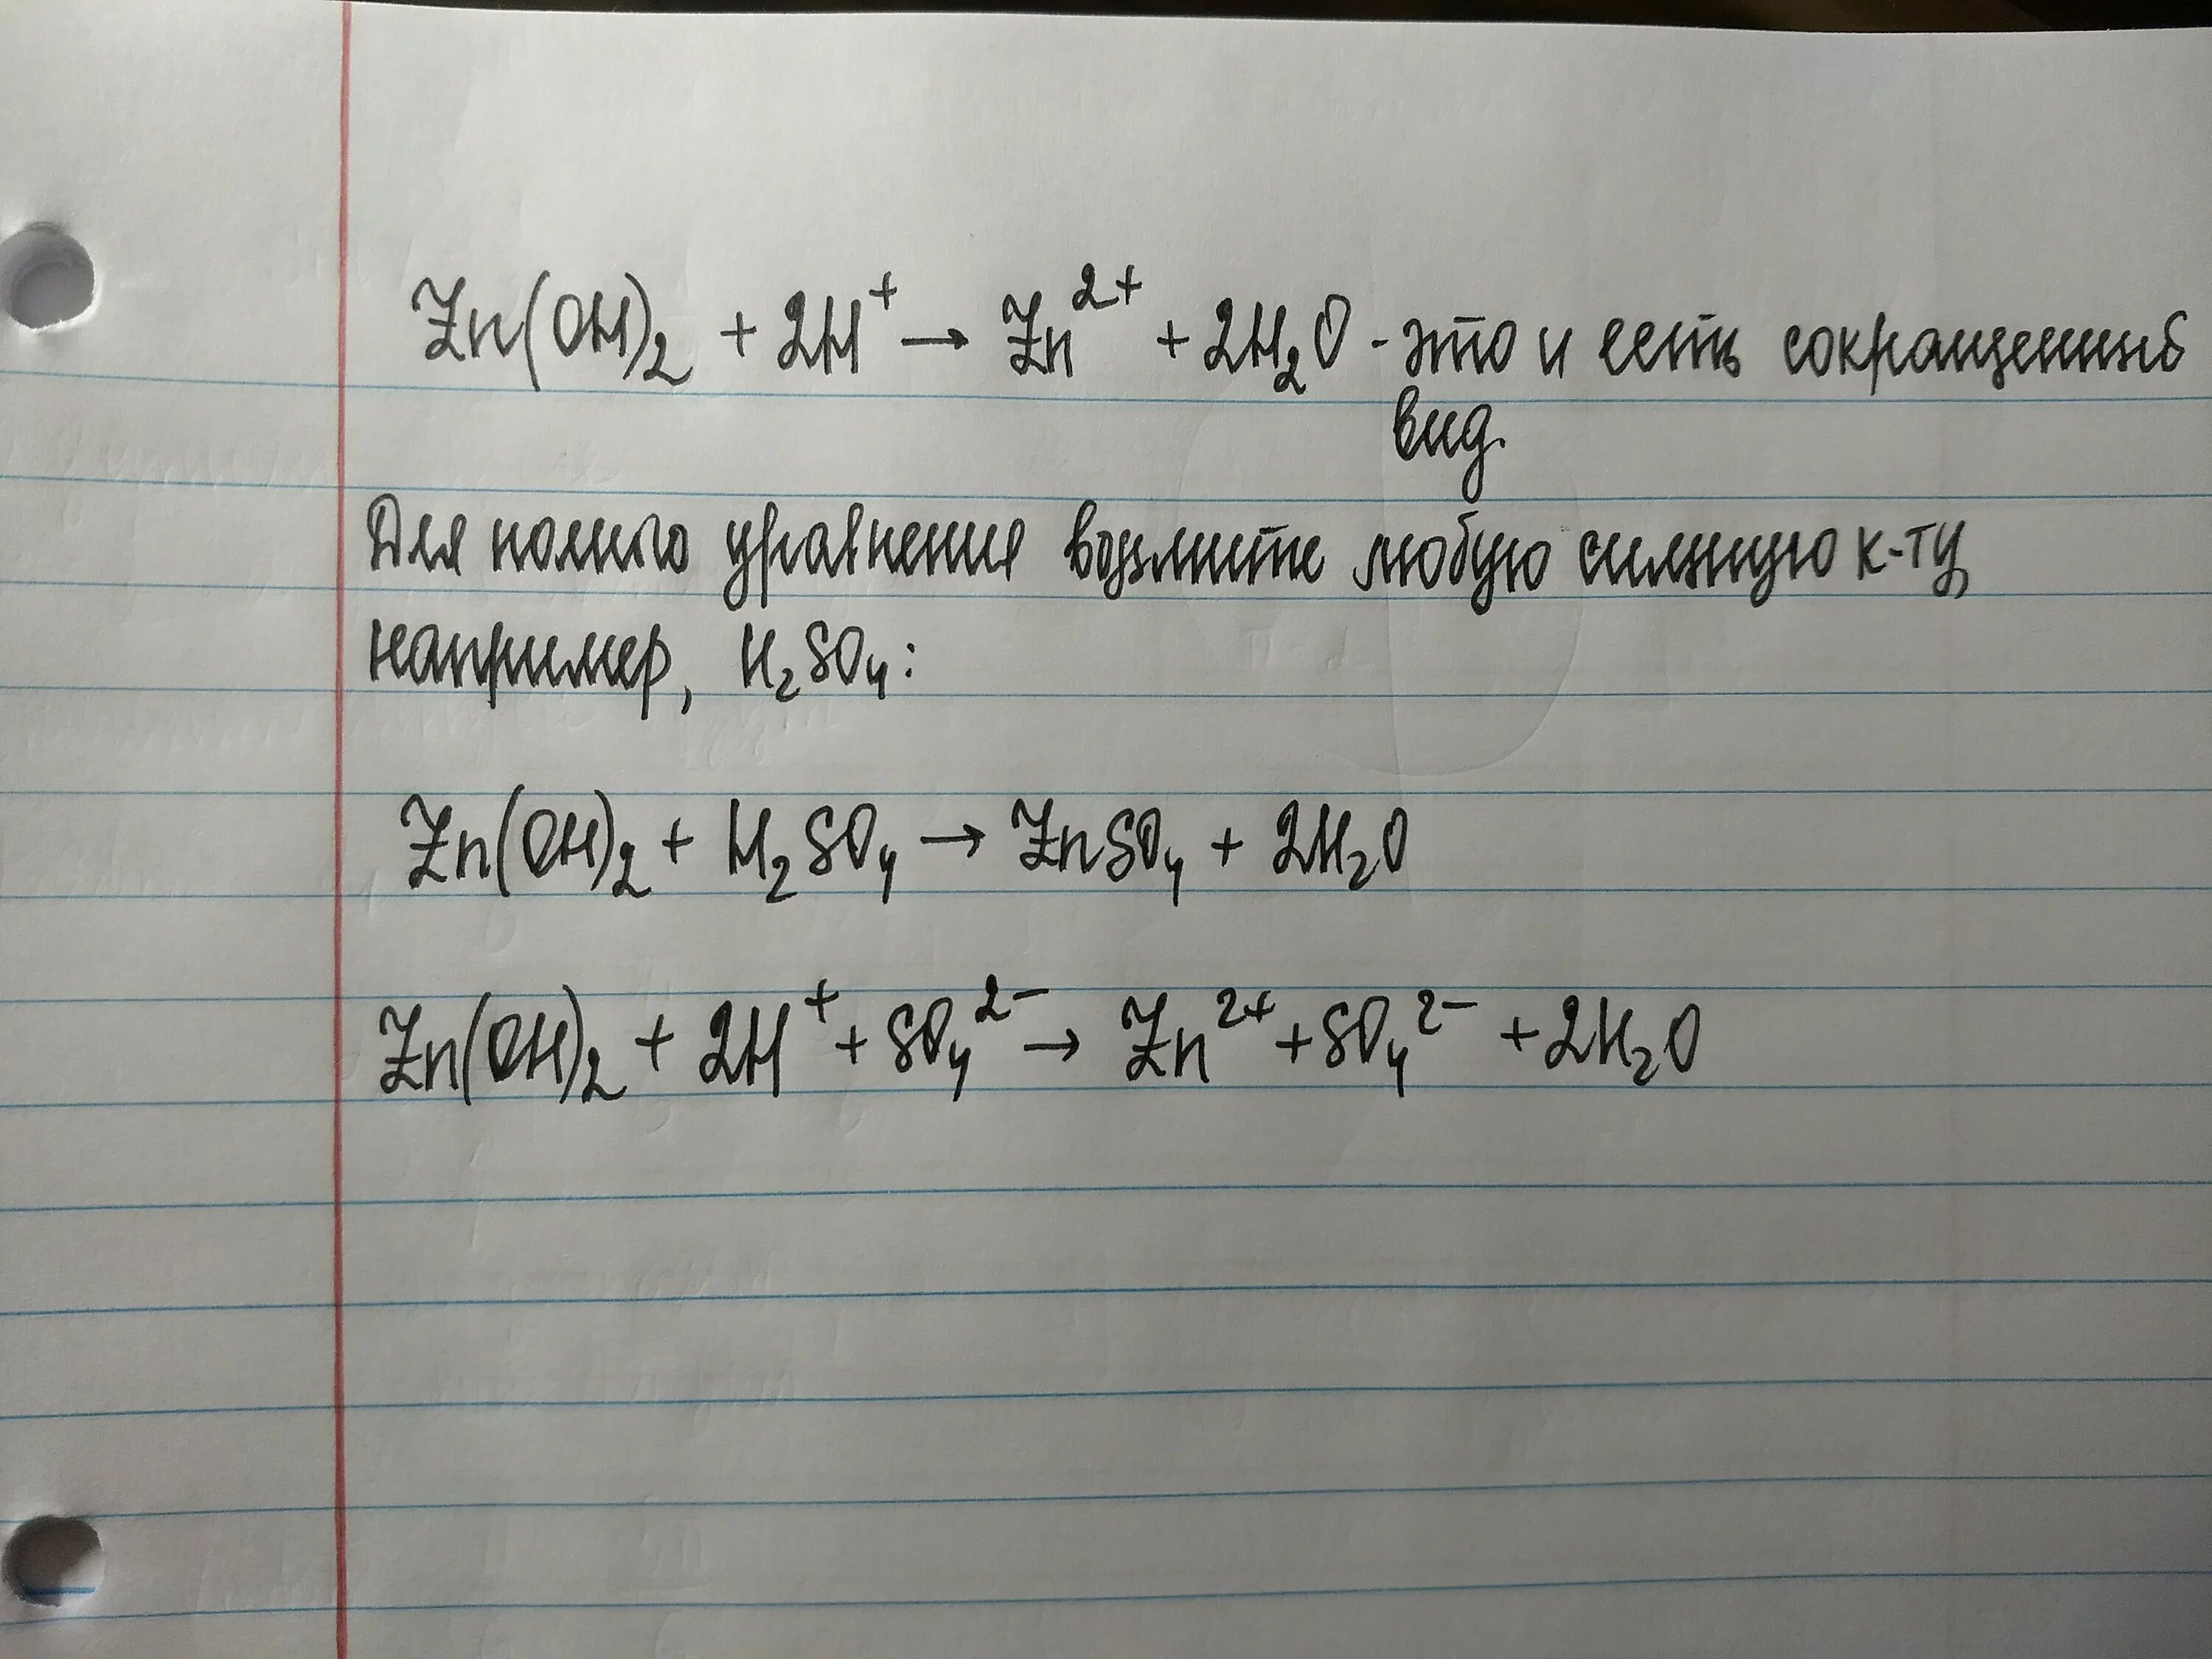 Zn(OH)₂ + 2H⁺ → Zn²⁺ + 2H₂O - это и есть сокращенный
вид.
Для полного уравнения возьмите любую сильную к-ту,
например, H₂SO₄:
Zn(OH)₂ + H₂SO₄ → ZnSO₄ + 2H₂O
Zn(OH)₂ + 2H⁺ + SO₄²⁻ → Zn²⁺ + SO₄²⁻ + 2H₂O